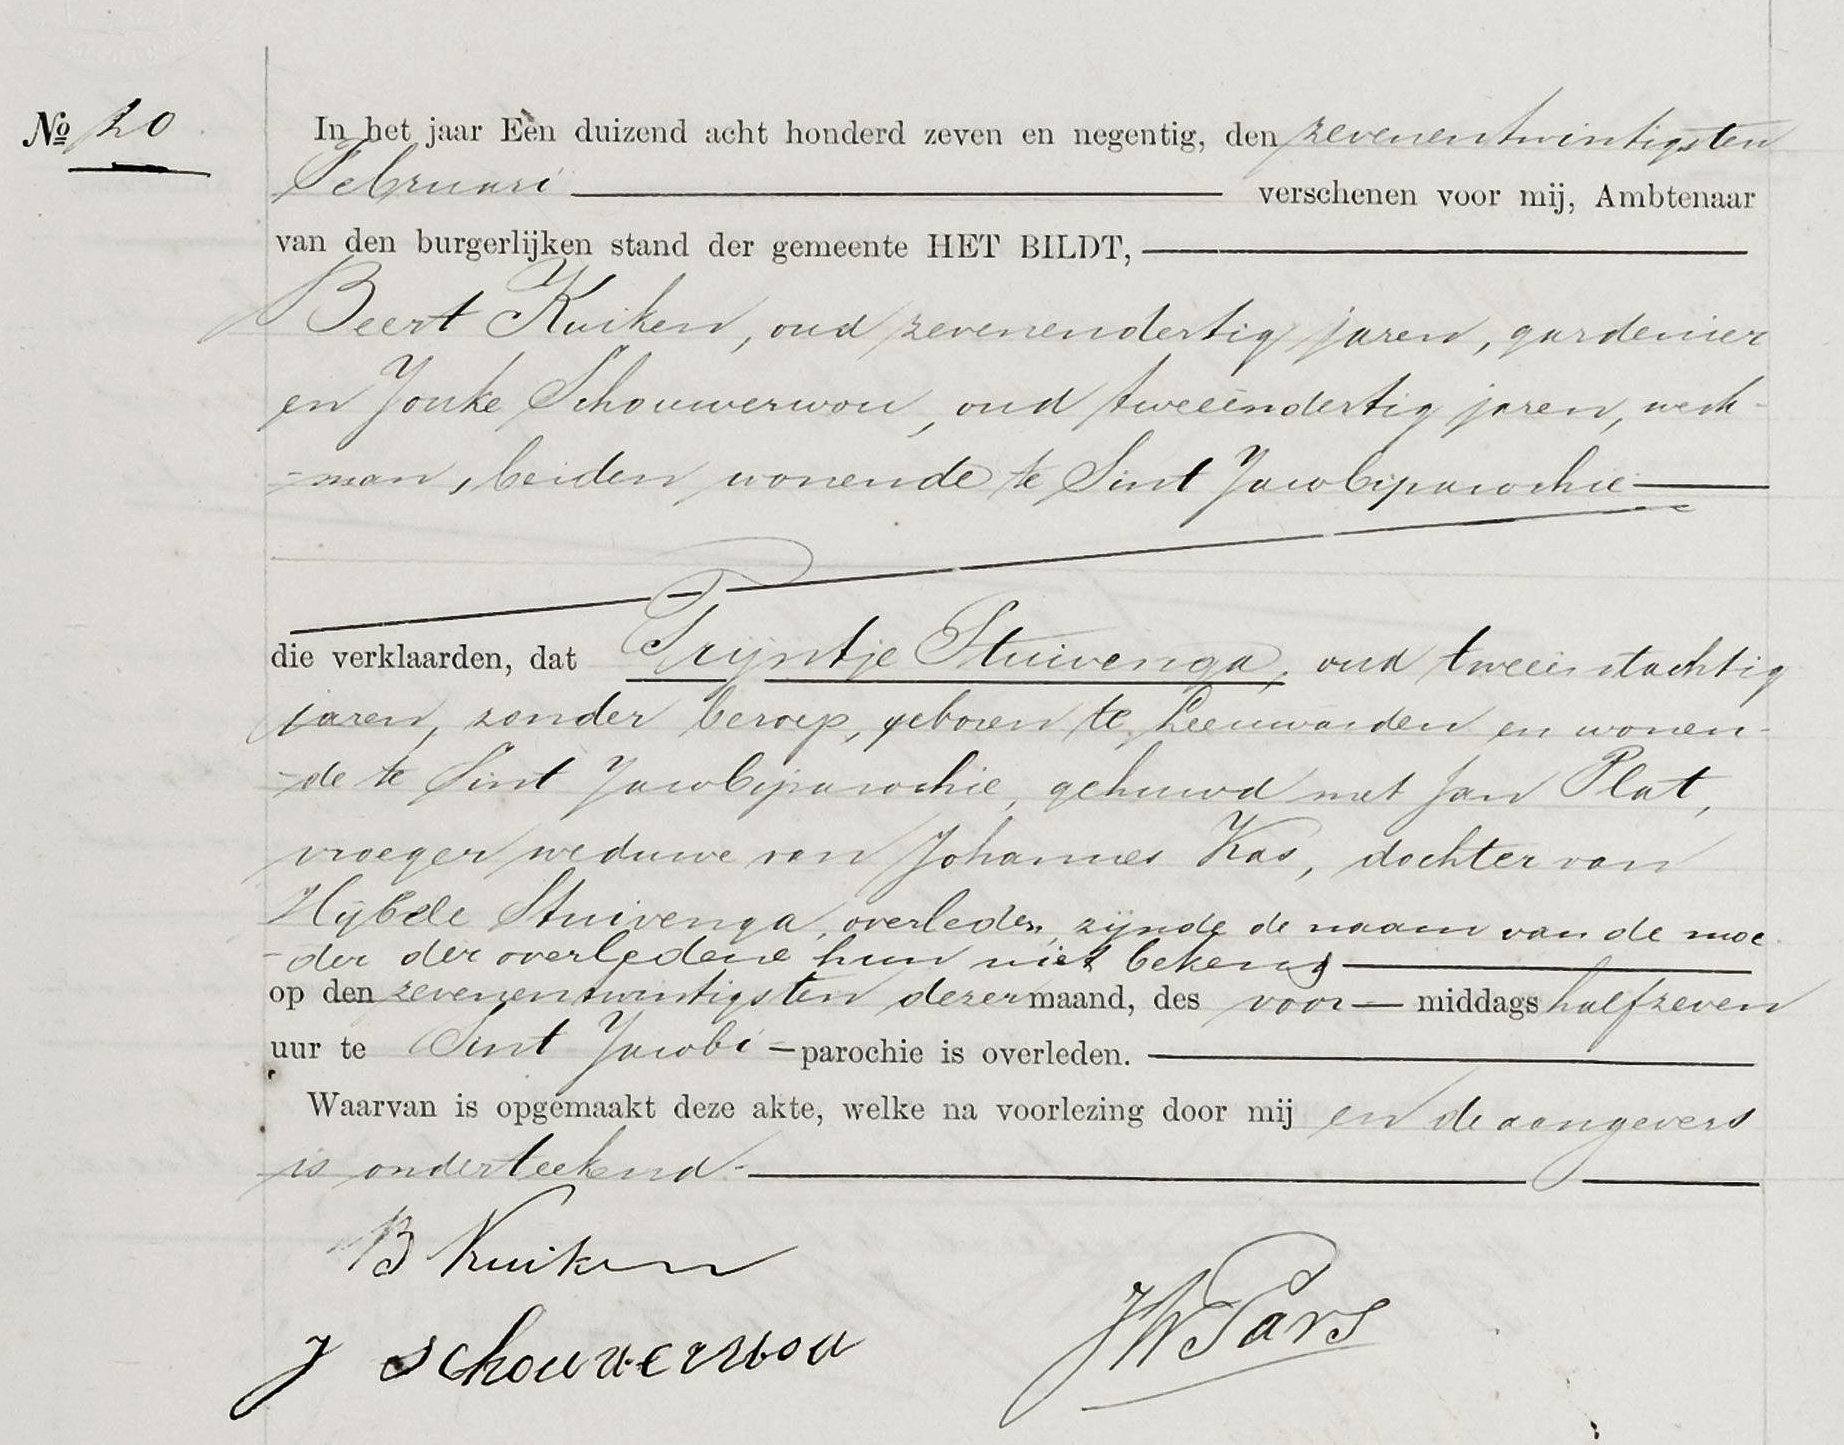 No 20
In het jaar Een duizend acht honderd zeven en negentig, den zevenentwintigsten
Februari verschenen voor mij, Ambtenaar
van den burgerlijken stand der gemeente HET BILDT,
Beert Kuiken, oud zevenendertig jaren, gardenier
en Jouke Schouwerwou, oud tweeëndertig jaren, werk-
-man, beiden wonende te Sint Jacobiparochie
die verklaarden, dat Trijntje Stuivenga, oud tweeëntachtig
jaren, zonder beroep, geboren te Leeuwarden en wonen-
-de te Sint Jacobiparochie, gehuwd met Jan Plat,
vroeger weduwe van Johannes Kas, dochter van
Hijbele Stuivenga, overleden, zijnde de naam van de moe-
-der der overledene hun niet bekend
op den zevenentwintigsten dezer maand, des voor- middags half zeven
uur te Sint Jacobi -parochie is overleden.
Waarvan is opgemaakt deze akte, welke na voorlezing door mij en de aangevers
is onderteekend.
B Kuiken
J Schouwerwou
JW Pars